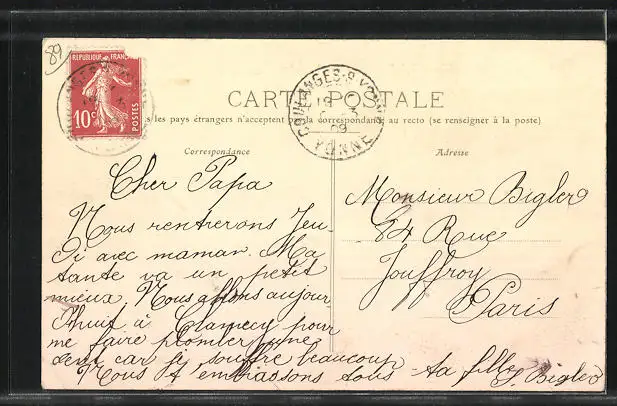 89
REPUBLIQUE FRANC
10c POSTES
COULANGES-S-YONNE
09
YONNE
CARTE POSTALE
s les pays étrangers n'acceptent pas la correspondance au recto (se renseigner à la poste)
Correspondance
Adresse
Cher Papa
Nous rentrerons Jeu-
di avec maman. Ma
tante va un petit
mieux. Nous allons aujour
d'huit à Clamecy pour
me faire plomber une
dent car j'y souffre beaucoup
Nous t'embrassons tous ta fille
S. Bigler
Monsieur Bigler
84 Rue
Jouffroy
Paris